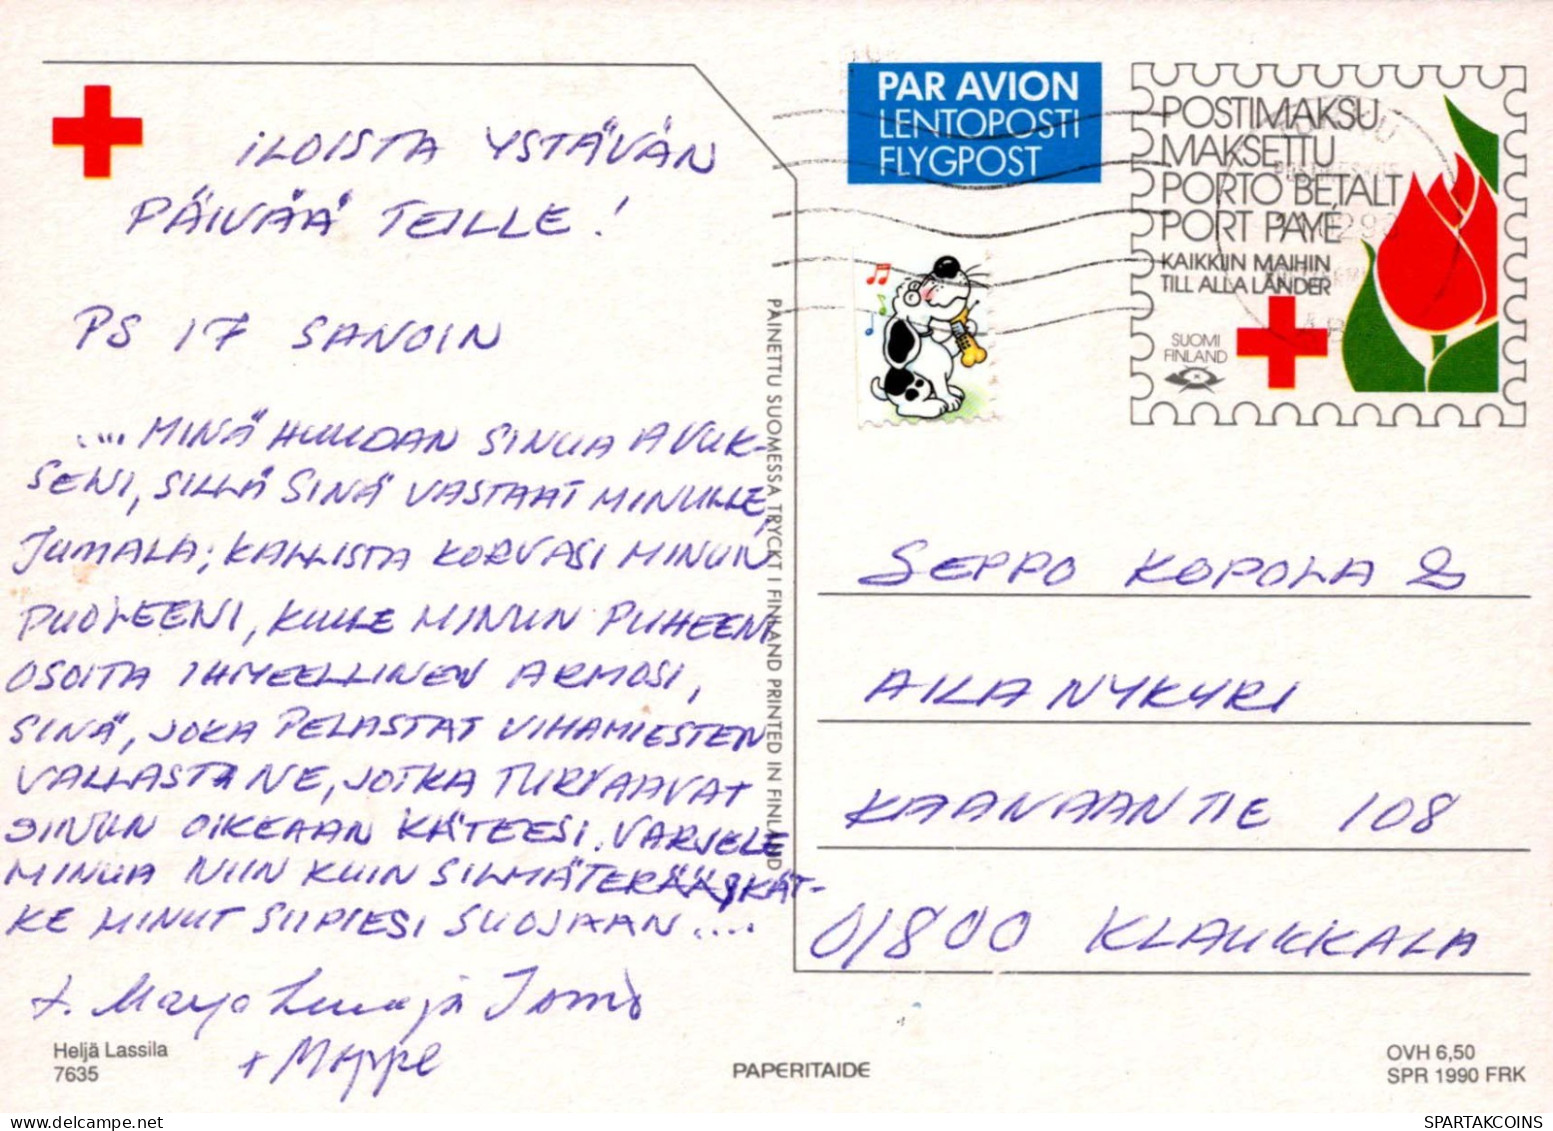 iLOISTA YSTÄVÄN
PÄIVÄÄ TEILLE!
PS 17 SANOIN
.... MINÄ HUUDAN SINUA AVUK-
SENI, SILLÄ SINÄ VASTAAT MINULLE,
JUMALA; KALLISTA KORVASI MINUN
PUOLEENI, KUULE MINUN PUHEENI
OSOITA IHMEELLINEN ARMOSI,
SINÄ, JOKA PELASTAT VIHAMIESTEN
VALLASTA NE, JOTKA TURVAAVAT
SINUN OIKEAAN KÄTEESI. VARJELE
MINUA NIIN KUIN SILMÄTERÄÄ, KÄT-
KE MINUT SIIPIESI SUOJAAN....
t. Marja Leena ja Tomi
+ Moppe
Heljä Lassila
7635
PAPERITAIDE
PAINETTU SUOMESSA TRYCKT I FINLAND PRINTED IN FINLAND
PAR AVION
LENTOPOSTI
FLYGPOST
POSTIMAKSU
MAKSETTU
PORTO BETALT
PORT PAYÉ
KAIKKIIN MAIHIN
TILL ALLA LÄNDER
SUOMI
FINLAND
SEPPO KOPOLA &
AILA NYKYRI
KAANAANTIE 108
01800 KLAUKKALA
OVH 6,50
SPR 1990 FRK
SPARTAKCOINS